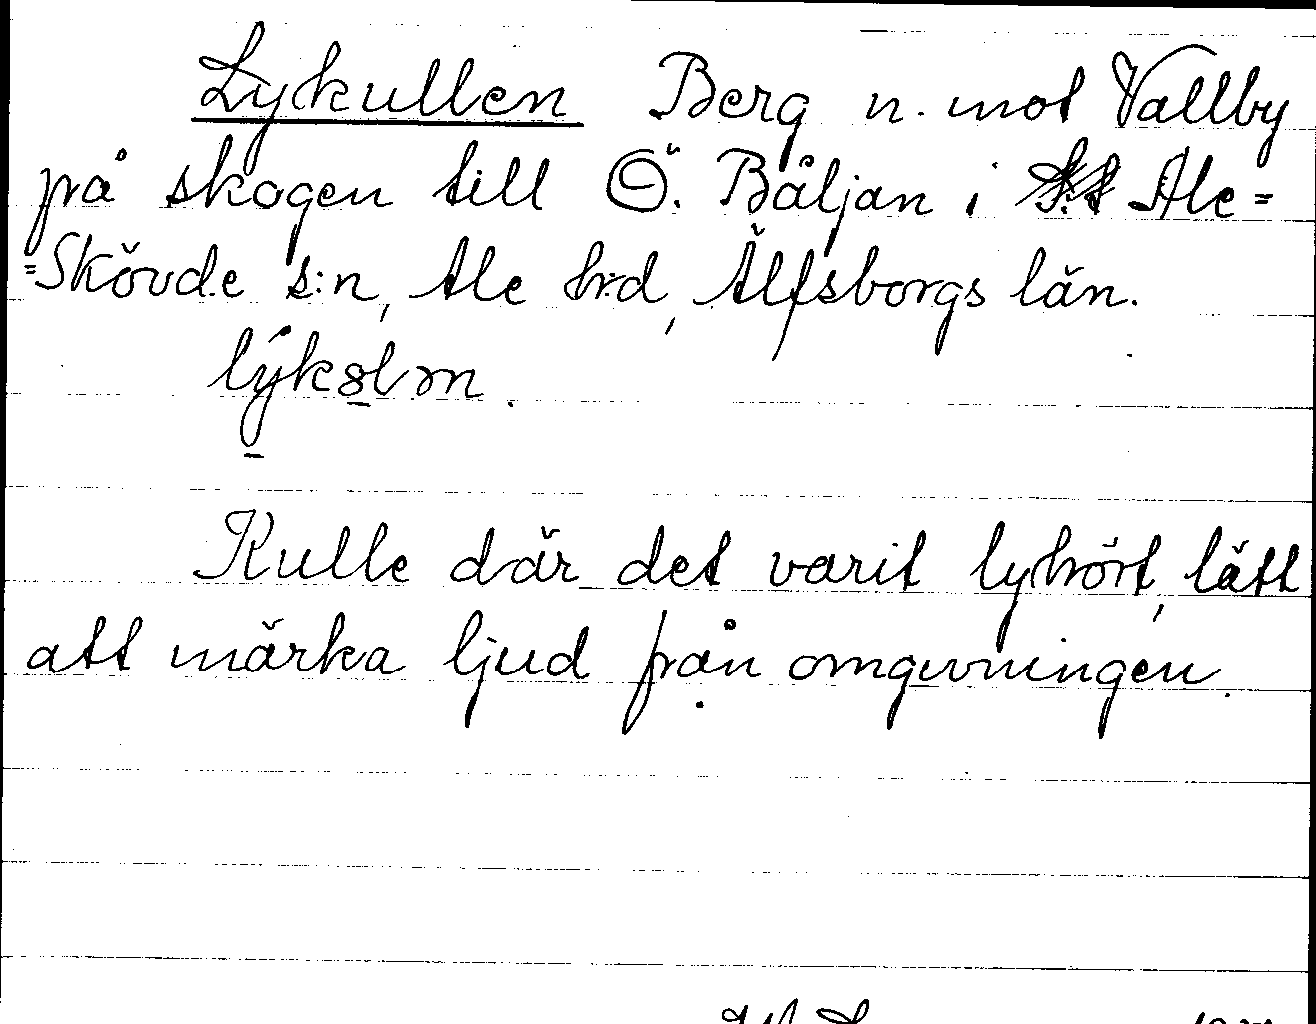 Lykullen Berg n. mot Vallby
på skogen till Ö. Båljan i Ale=
=Skövde s:n, Ale h:d, Älfsborgs län.
Kulle där det varit lyhört, lätt
att märka ljud från omgivningen.